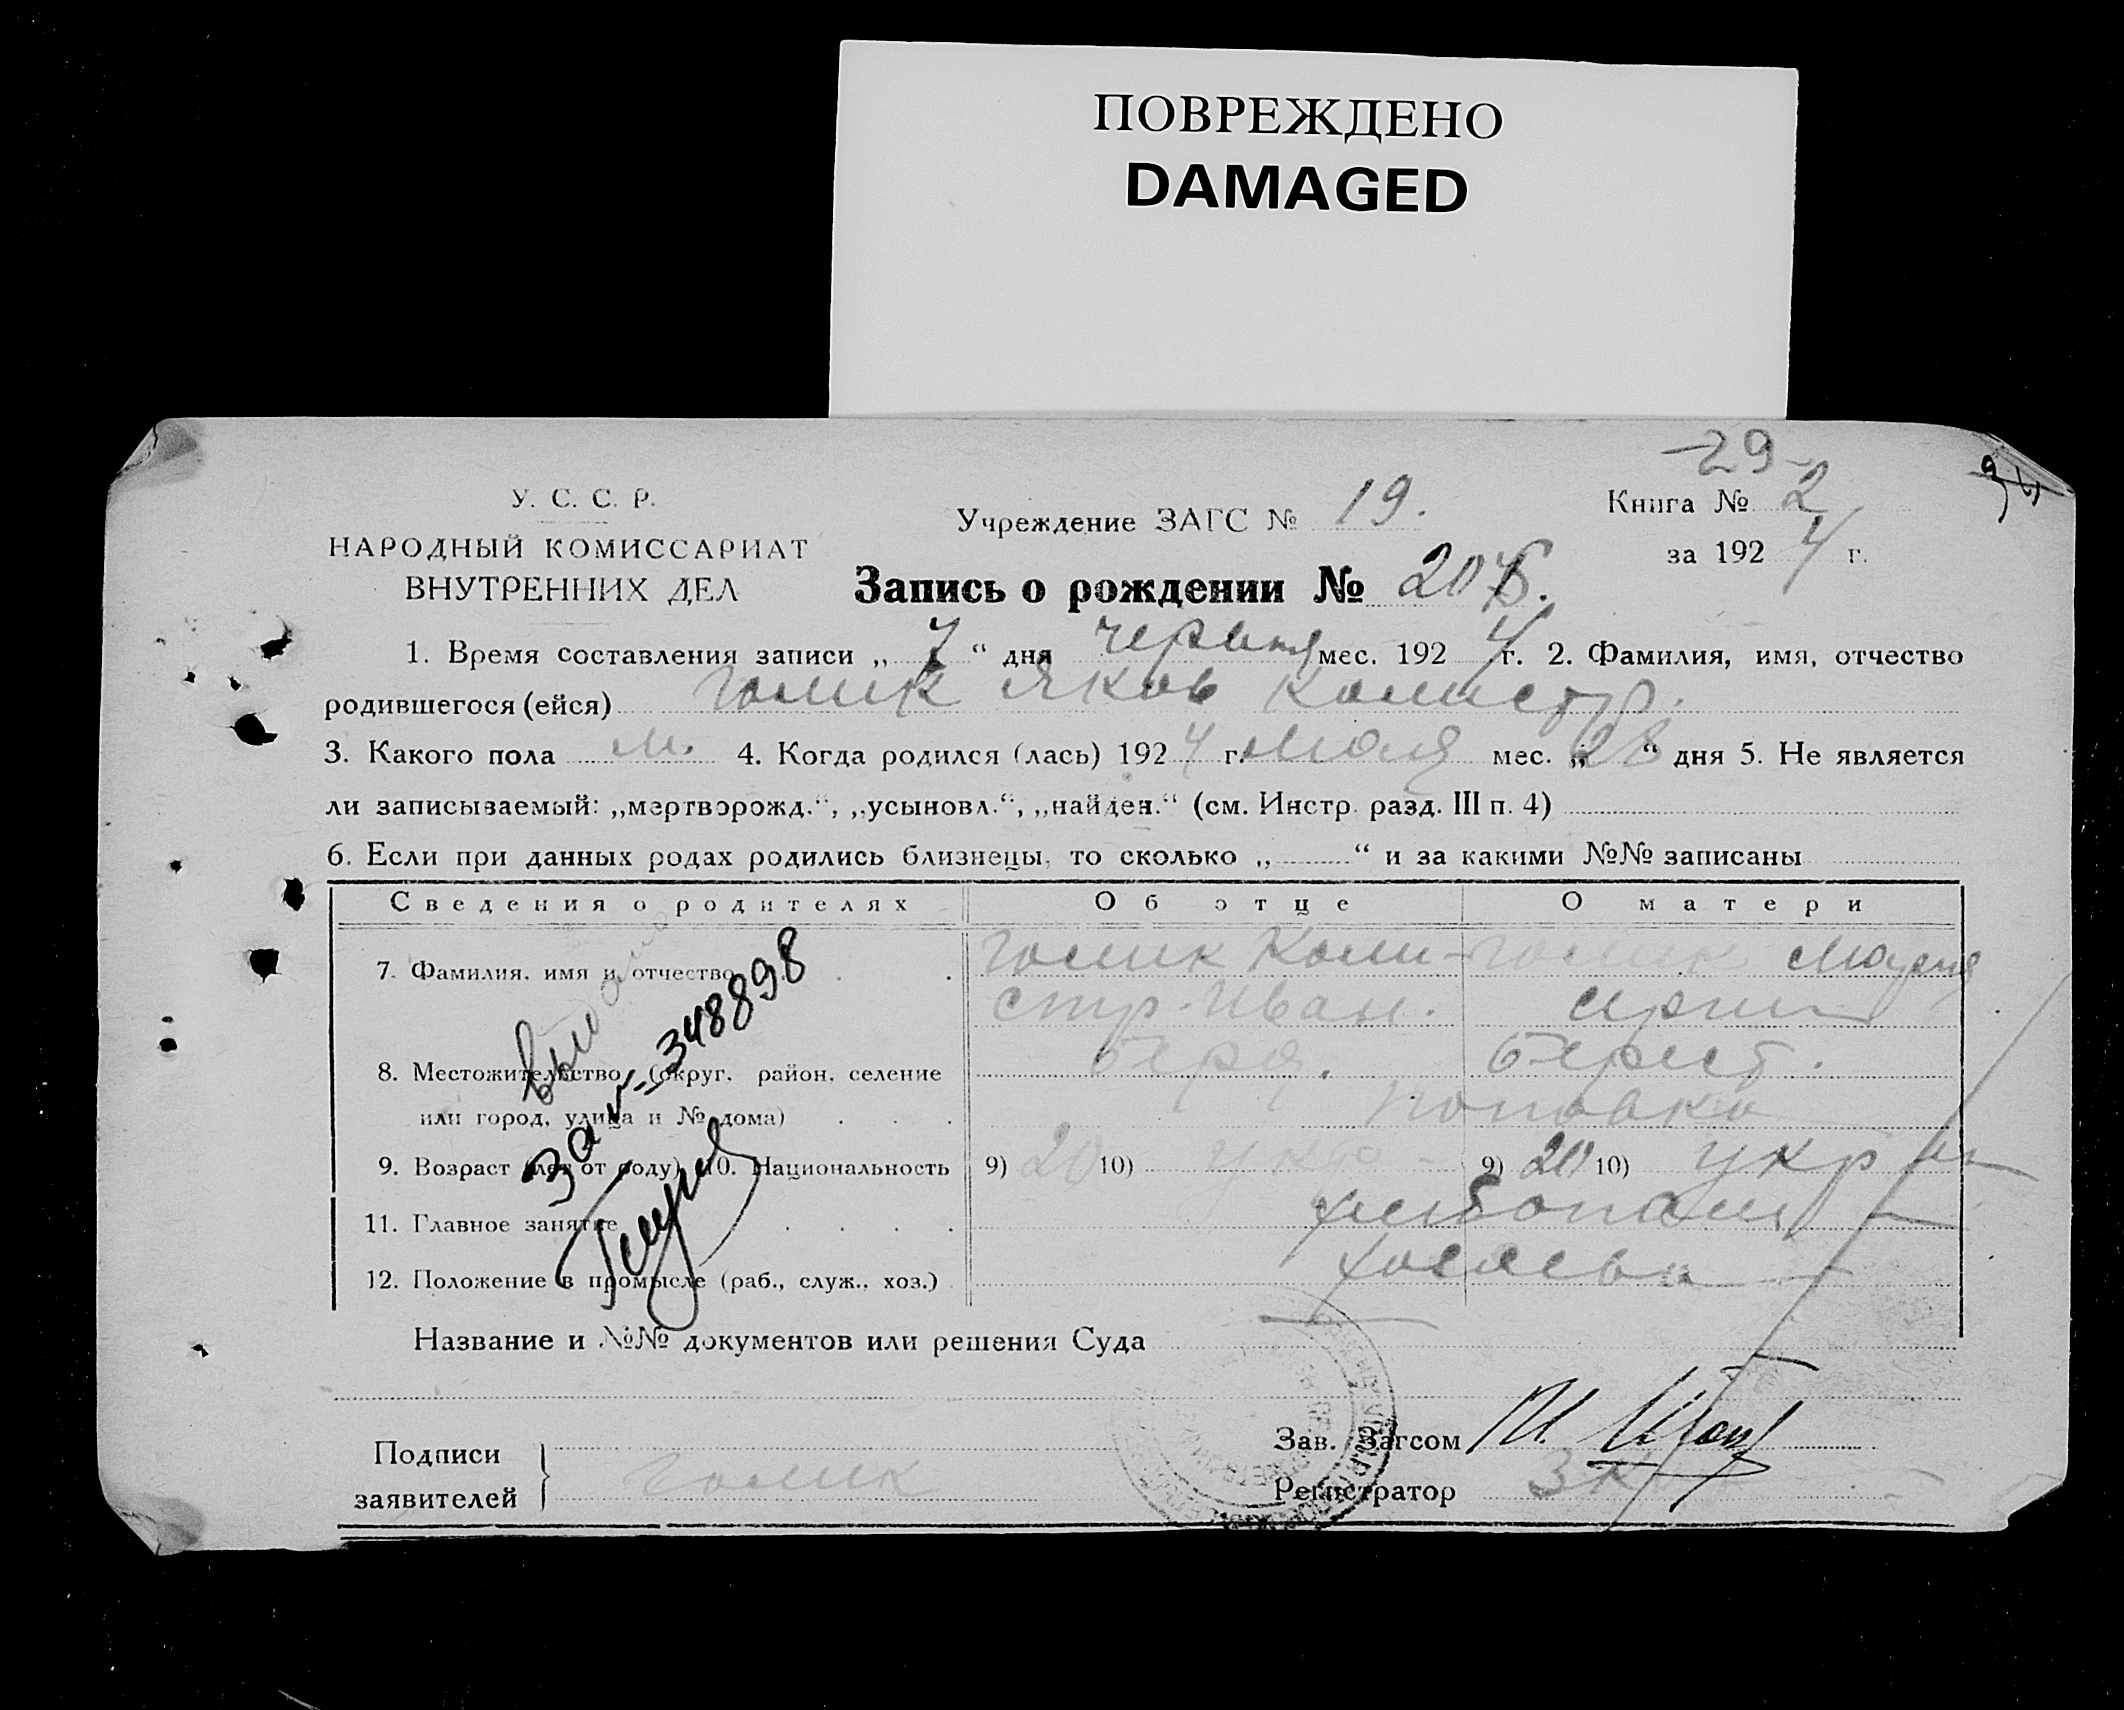 ПОВРЕЖДЕНО
DAMAGED
-29-
У. С. С. Р.
НАРОДНЫЙ КОМИССАРИАТ
ВНУТРЕННИХ ДЕЛ
Учреждение ЗАГС № 19.
Книга № 2
за 1924 г.
Запись о рождении №
1. Время составления записи „ 7 “ дня червня мес. 1924 г. 2. Фамилия, имя, отчество
родившегося (ейся) Голик Яков Калистр.
3. Какого пола м. 4. Когда родился (лась) 1924 г. Мая мес. „ 28 “ дня 5. Не является
ли записываемый: „мертворожд.“, „усыновл.“, „найден.“ (см. Инстр. разд. III п. 4)
6. Если при данных родах родились близнецы, то сколько „ “ и за какими №№ записаны
Сведения о родителях Об отце О матери
7. Фамилия, имя и отчество Голик Кали- Голик
стр. Иван.
8. Местожительство (округ, район, селение
или город, улица и № дома) Поповка
9. Возраст (лет от роду) 10. Национальность 9) 20 10) укр 9) 20 10) укр
11. Главное занятие
12. Положение в промысле (раб., служ., хоз.)
348898
Название и №№ документов или решения Суда
Подписи
заявителей Голик
Зав. Загсом
Регистратор